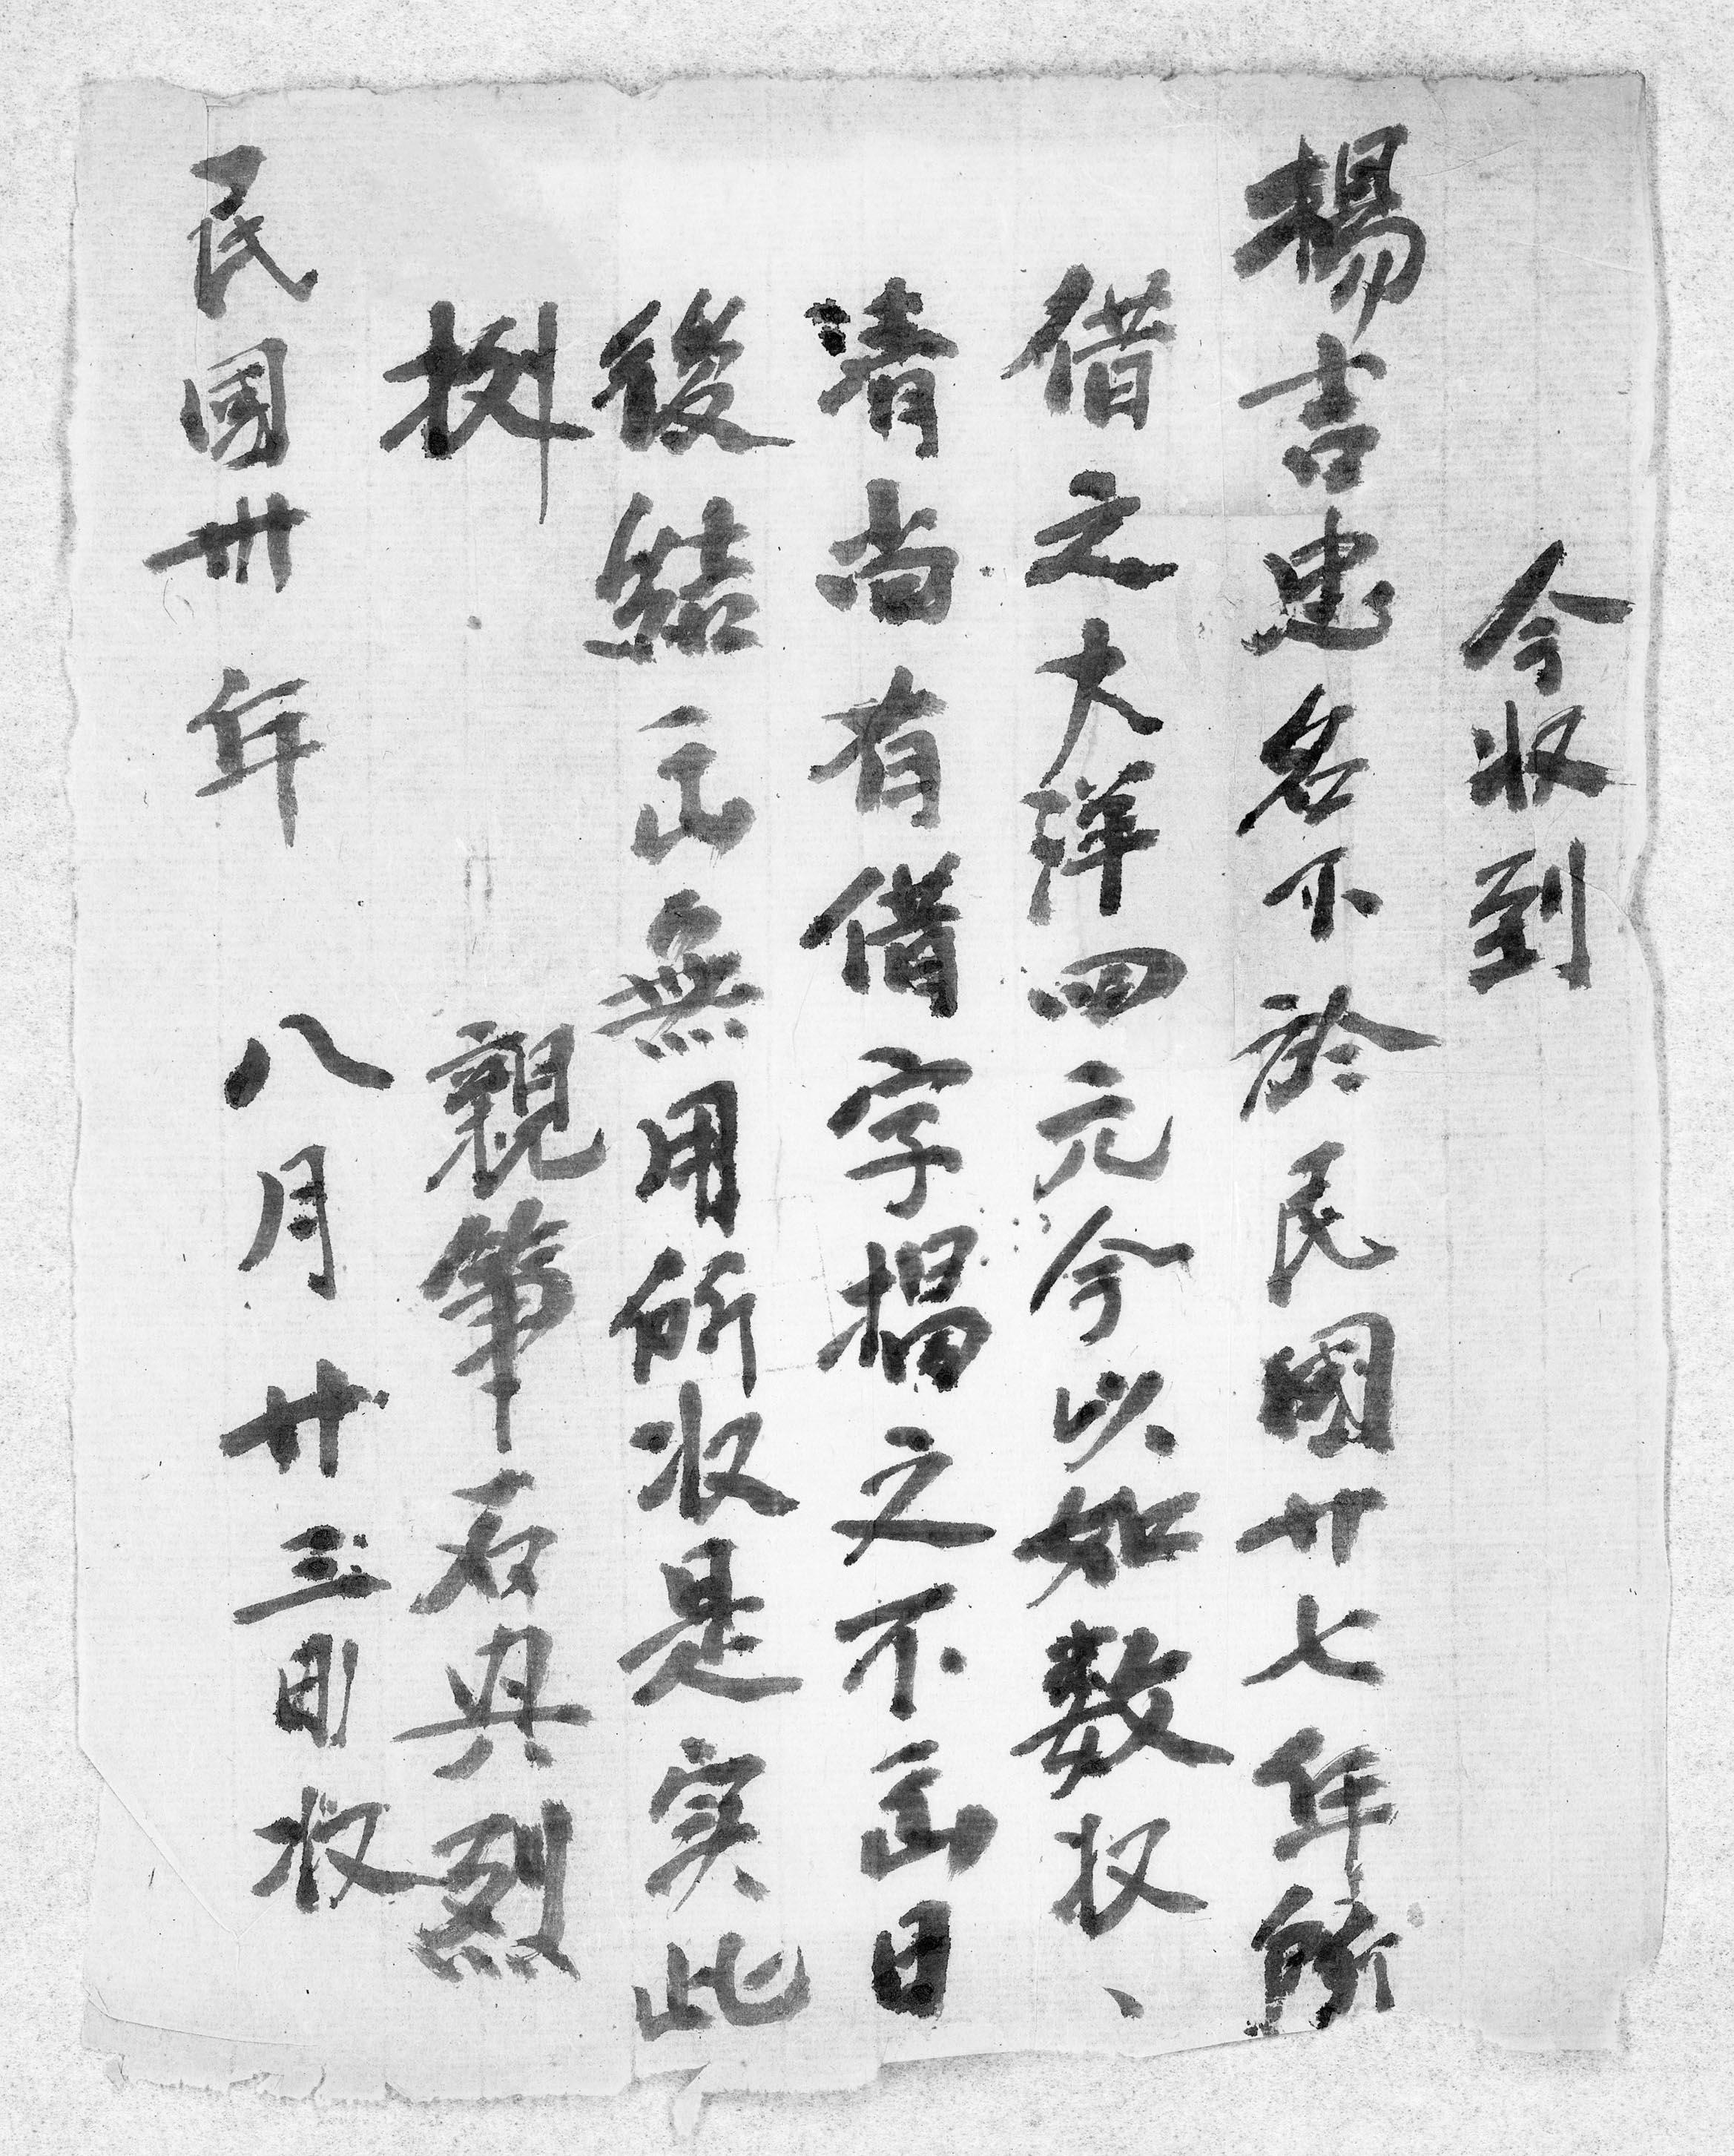 今収到
楊吉忠名下於民國廿七年所
借之大洋四元今以如数収
清尚有借字揭之不出日
後結出無用所収是实此
挒
親筆石興烈
民國卅年 八月廿三日収